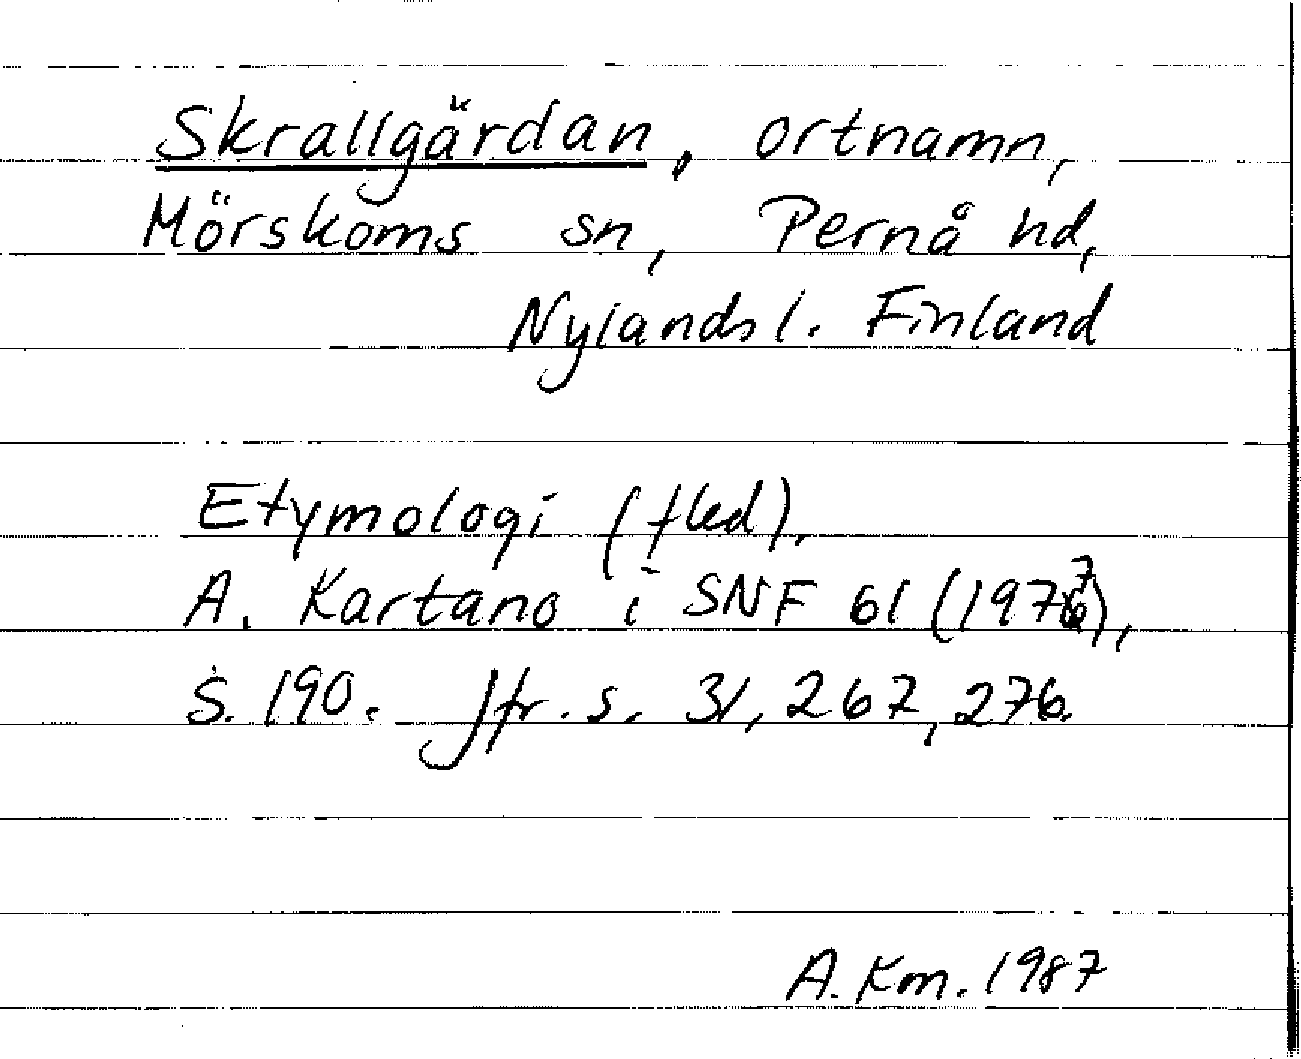 Skrallgärdan, ortnamn,
Mörskoms sn, Pernå hd,
Nylands l. Finland
Etymologi (fled).
A. Kartano i SNF 61 (1977),
s. 190. Jfr. s. 31, 267, 276.
A. Km. 1987